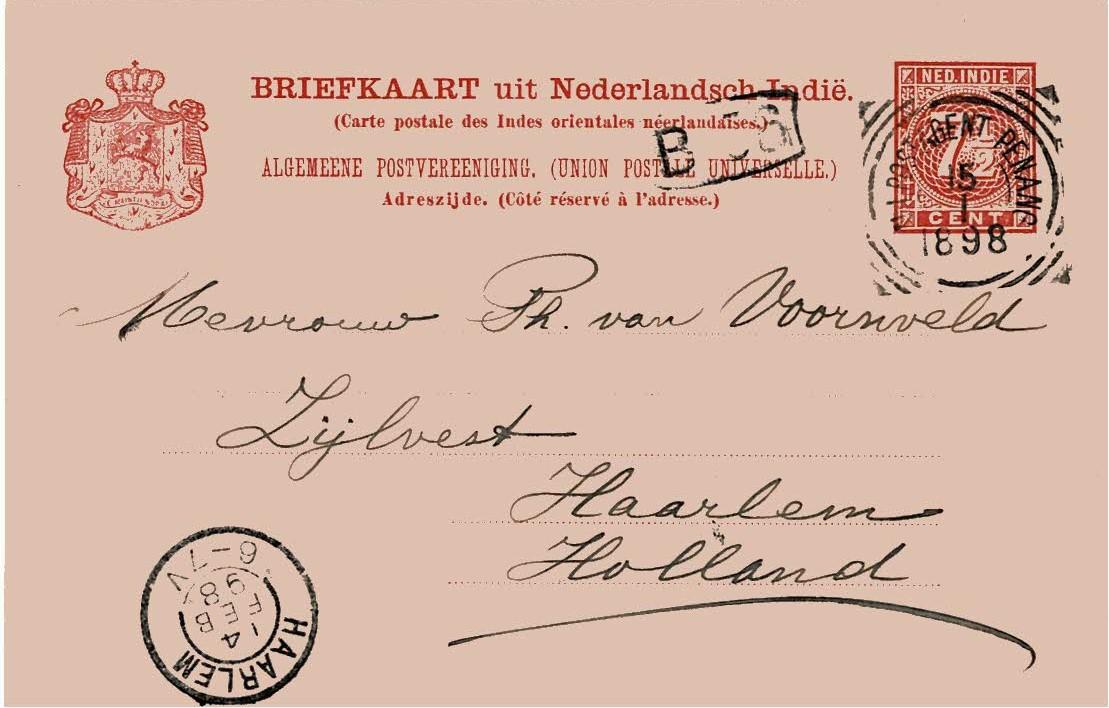 BRIEFKAART uit Nederlandsch-Indië.
(Carte postale des Indes orientales néerlandaises.)
ALGEMEENE POSTVEREENIGING. (UNION POSTALE UNIVERSELLE.)
Adreszijde. (Côté réservé à l'adresse.)
NED. INDIE
7 1/2
CENT
AGENT PENANG
15
1
1898
Mevrouw Ph. van Voornveld
Zijlvest
Haarlem
Holland
HAARLEM
4 FEB 98
6-7V